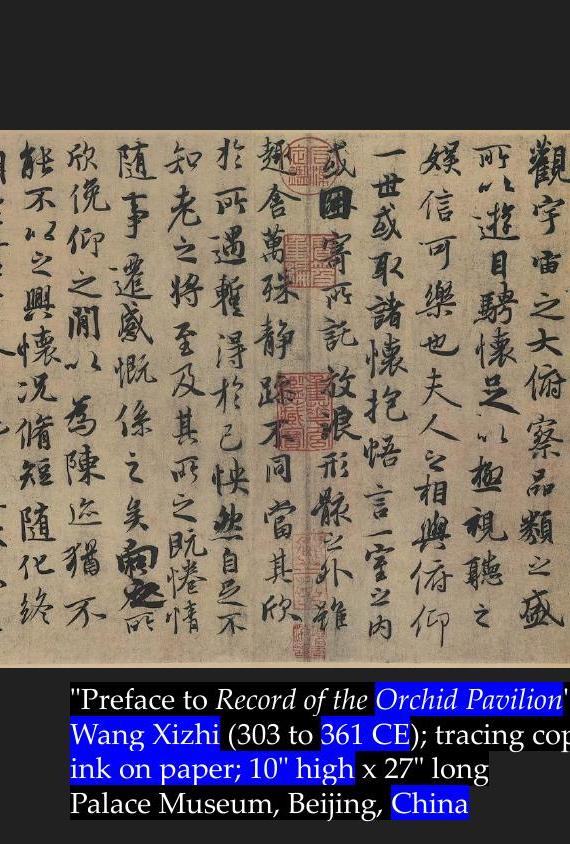 觀宇宙之大俯察品類之盛
所以遊目騁懷足以極視聽之
娛信可樂也夫人之相與俯仰
一世或取諸懷抱悟言一室之內
或因寄所託放浪形骸之外雖
趣舍萬殊静躁不同當其欣
於所遇暫得於己怏然自足不
知老之將至及其所之既惓情
隨事遷感慨係之矣向之所
欣俛仰之閒以為陳迹猶不
能不以之興懷況脩短隨化終
"Preface to Record of the Orchid Pavilion"
Wang Xizhi (303 to 361 CE); tracing cop
ink on paper; 10" high x 27" long
Palace Museum, Beijing, China